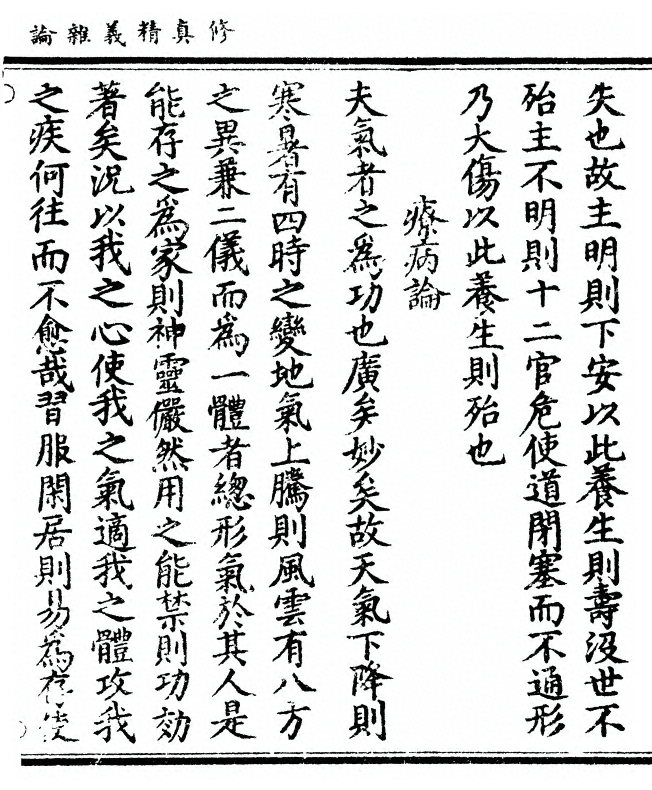 修真精義雜論
失也故主明則下安以此養生則壽没世不
殆主不明則十二官危使道閉塞而不通形
乃大傷以此養生則殆也
療病論
夫氣者之爲功也廣矣妙矣故天氣下降則
寒暑有四時之變地氣上騰則風雲有八方
之異兼二儀而爲一體者總形氣於其人是
能存之爲家則神靈儼然用之能禁則功効
著矣況以我之心使我之氣適我之體攻我
之疾何往而不愈哉習服閑居則易爲存